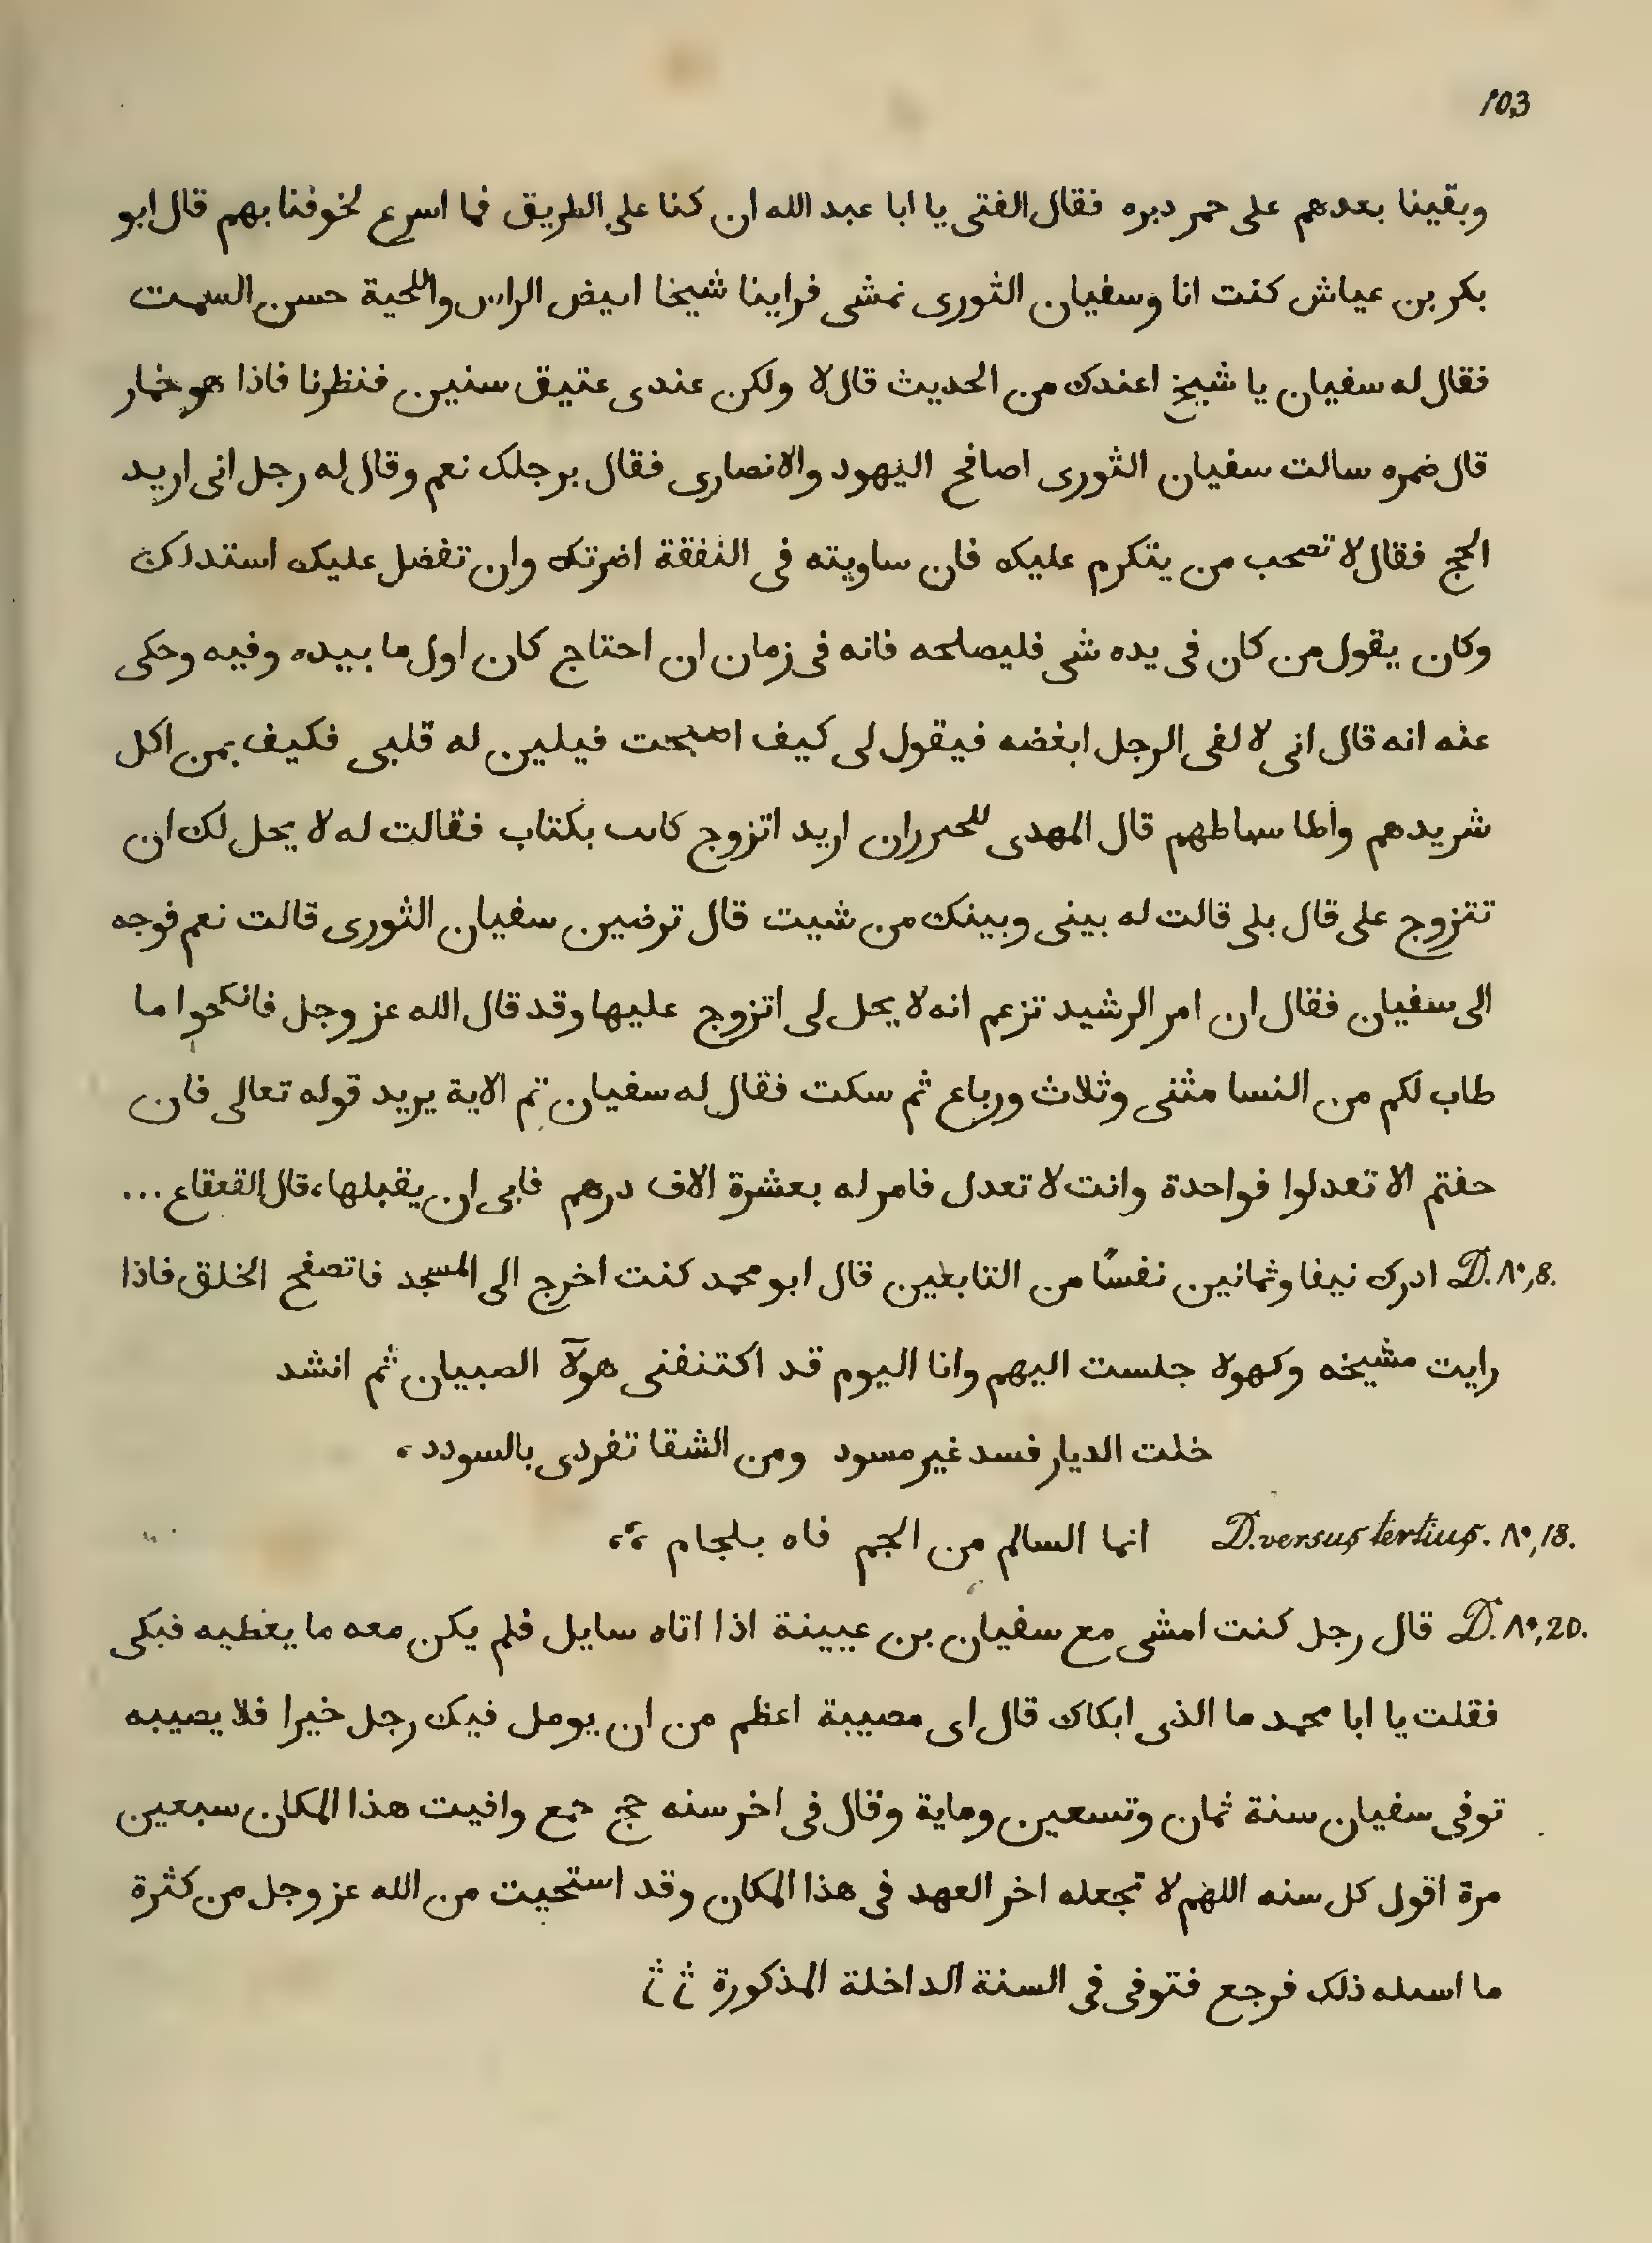 103
وبقينا بعدهم على حمر دبره فقال الفتى يا ابا عبد الله ان كنا على الطريق فما اسرع لخوفنا بهم قال ابو
بكر بن عياش كنت انا وسفيان الثورى نمشى فراينا شيخا ابيض الراس واللحية حسن السمت
فقال له سفيان يا شيخ اعندك من الحديث قال لا ولكن عندى عتيق سنين فنظرنا فاذا هو خمار
قال ضمره سالت سفيان الثورى اصافح اليهود والانصارى فقال برجلك نعم وقال له رجل انى اريد
الحج فقال لا تصحب من يتكرم عليك فان ساويته فى النفقة اضرتك وان تفضل عليك استدلك
وكان يقول من كان فى يده شى فليصلحه فانه فى زمان ان احتاج كان اول ما بيده وفيه وحكى
عنه انه قال انى لا لفى الرجل ابغضه فيقول لى كيف اصبحت فيلين له قلبى فكيف بمن اكل
شريدهم واطا سماطهم قال المهدى اريد اتزوج بكتاب فقالت له لا يحل لك ان
تتزوج على قال بلى قالت له بينى وبينك من شيت قال ترضين سفيان الثورى قالت نعم فوجه
الى سفيان فقال ان امر الرشيد تزعم انه لا يحل لى اتزوج عليها وقد قال الله عز وجل فانكحوا ما
طاب لكم من النسا مثنى وثلاث ورباع ثم سكت فقال له سفيان تم الاية يريد قوله تعالى فان
حفتم الا تعدلوا فواحدة وانت لا تعدل فامر له بعشرة الاف درهم فابى ان يقبلها، قال القعقاع ...
D. ٨٠, 8. ادرك نيفا وثمانين نفسًا من التابعين قال ابو محمد كنت اخرج الى المسجد فاتصفح الخلق فاذا
رايت مشيخه وكهولا جلست اليهم وانا اليوم قد اكتنفنى هولآ الصبيان ثم انشد
خلت الديار فسد غير مسود ومن الشقا تفردى بالسودد،
D. versus tertius. ٨٠, 18. انما السالم من الجم فاه بلجام ،،
D. ٨٠, 20. قال رجل كنت امشى مع سفيان بن عيينة اذا اتاه سايل فلم يكن معه ما يعطيه فبكى
فقلت يا ابا محمد ما الذى ابكاك قال اى مصيبة اعظم من ان يومل فيك رجل خيرا فلا يصيبه
توفى سفيان سنة ثمان وتسعين وماية وقال فى اخر سنه حج جمع وافيت هذا المكان سبعين
مرة اقول كل سنه اللهم لا تجعله اخر العهد فى هذا المكان وقد استحيت من الله عز وجل من كثرة
ما اسله ذلك فرجع فتوفى فى السنة الداخلة المذكورة